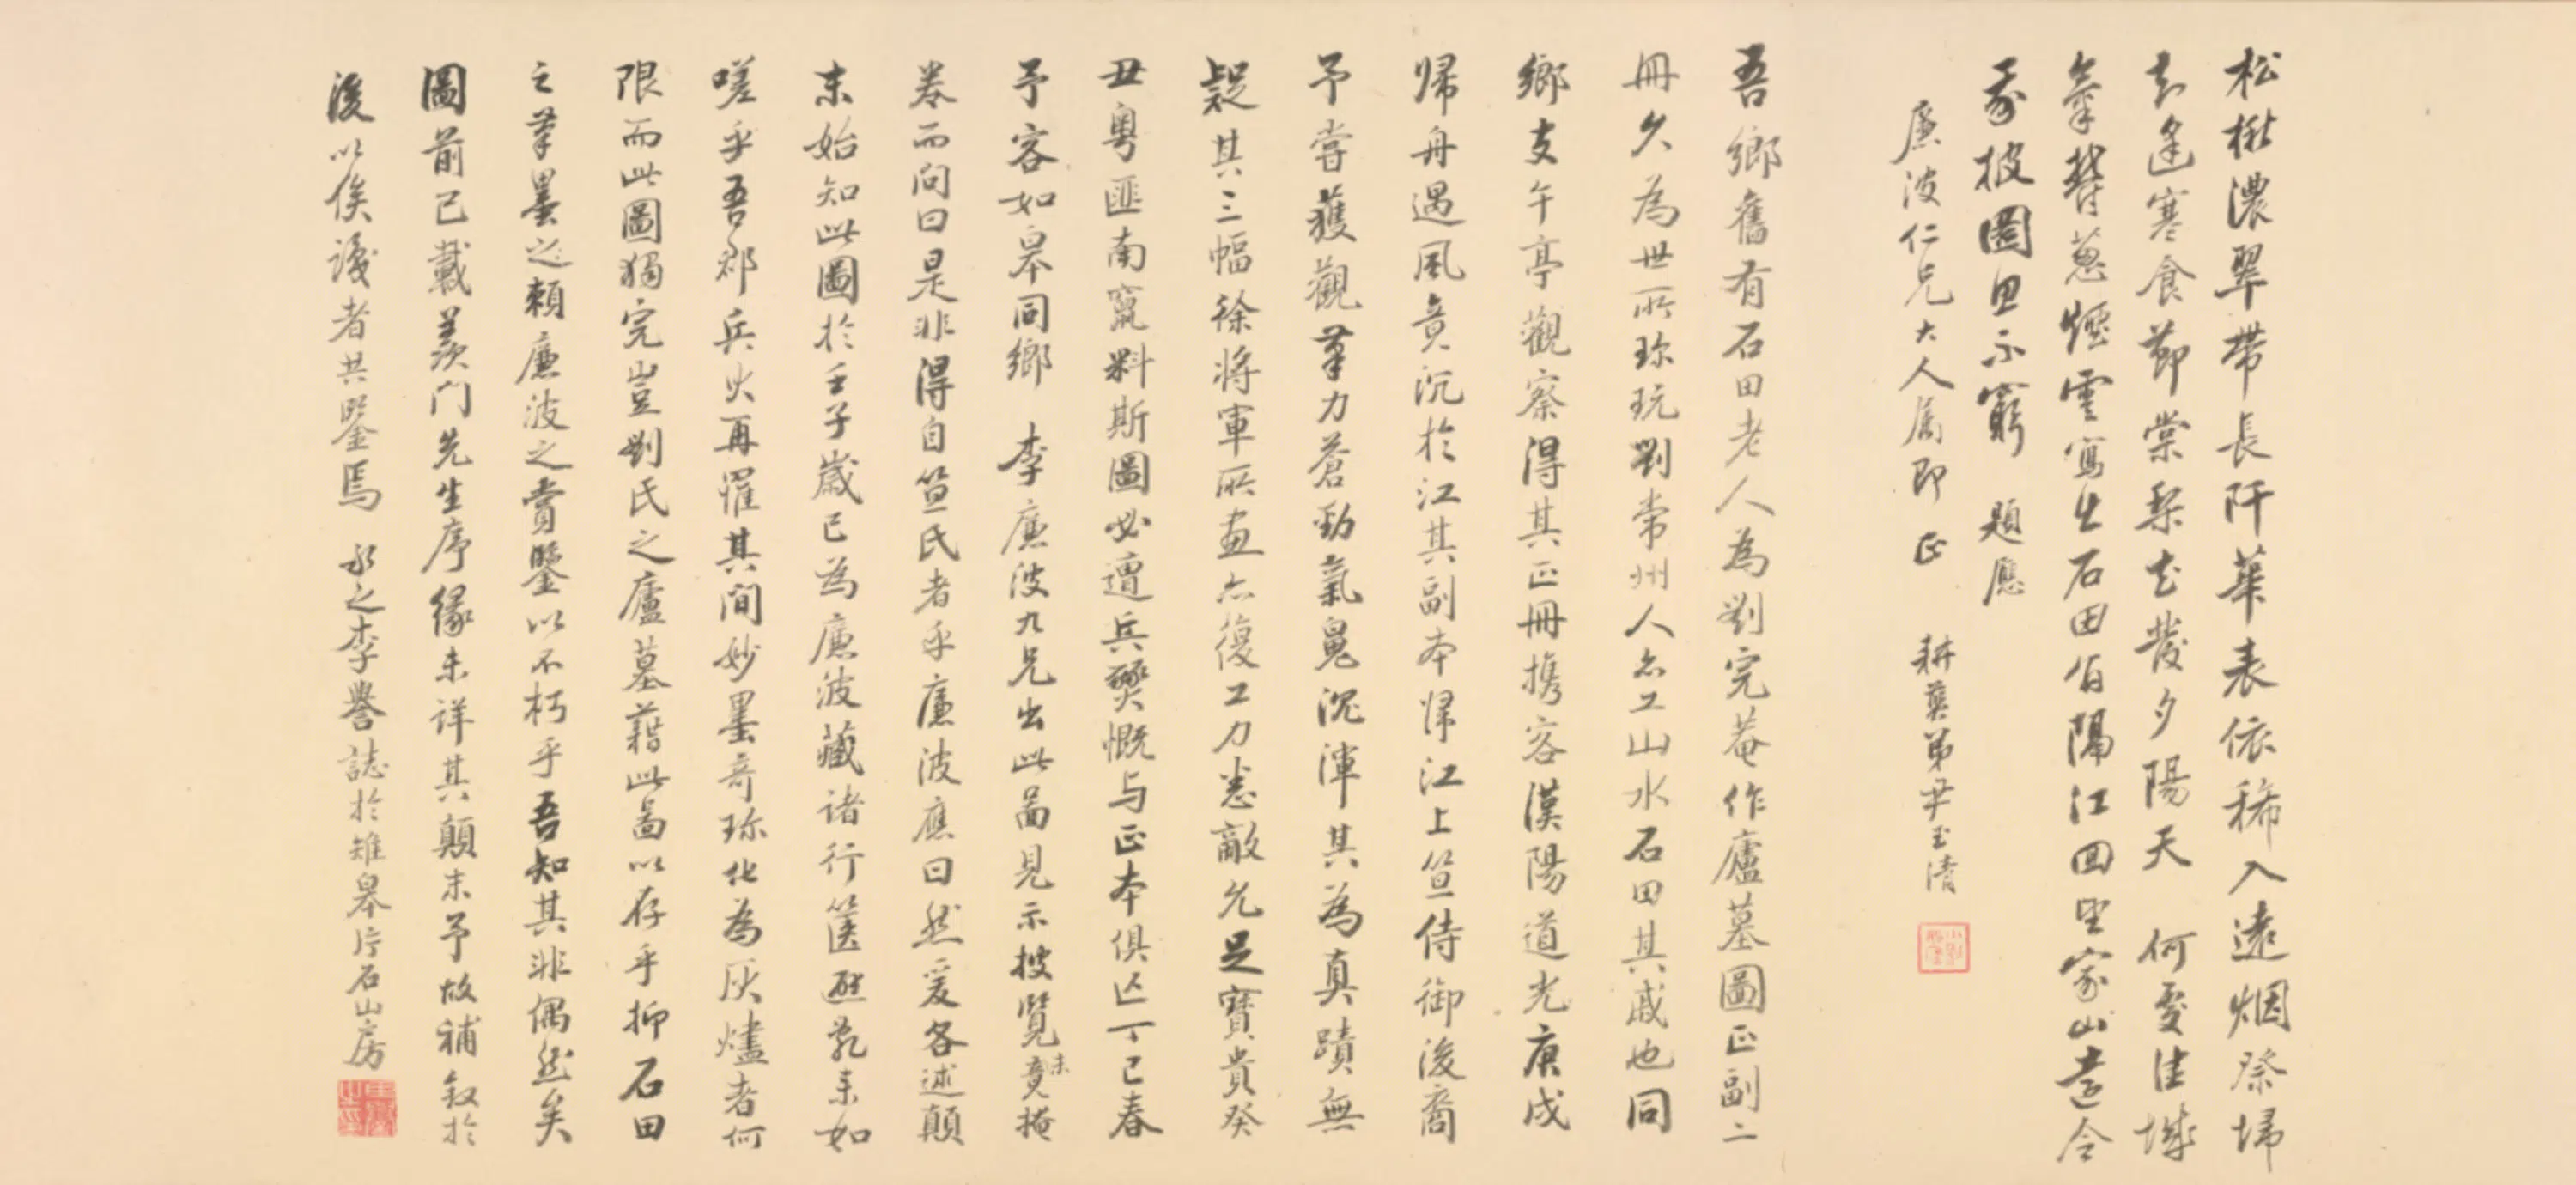 松楸濃翠帶長阡華表依稀入遠烟祭埽
封逢寒食節棠梨花發夕陽天 何處佳城
氣鬱葱煙雲寫出石田佰隔江回望家山遠令
我披圖思不窮 題應
廉波仁兄大人屬即 正 耕葵弟尹玉清
吾鄉舊有石田老人為劉完菴作廬墓圖正副二
冊久為世所珍玩劉常州人亦工山水石田其戚也同
鄉支午亭觀察得其正冊攜客漢陽道光庚戌
歸舟遇風竟沉於江其副本歸江上笪侍御後裔
予嘗獲觀筆力蒼勁氣鬼沉渾其為真蹟無
疑其三幅徐將軍所畫亦復工力悉敵允足寶貴癸
丑粵匪南竄料斯圖必遭兵燹慨与正本俱亡丁巳春
予客如皋同鄉 李廉波九兄出此圖見示披覽未竟掩
卷而问曰是非得自笪氏者乎廉波應曰然爰各述顛
末始知此圖於壬子歲已為廉波藏诸行篋避亂來如
嗟乎吾郡兵火再罹其间妙墨奇珍化為灰燼者何
限而此圖獨完豈劉氏之廬墓藉此圖以存乎抑石田
之筆墨之賴廉波之賞鑒以不朽乎吾知其非偶然矣
圖前已載羨门先生序緣未详其顛末予故補叙於
後以俟識者共鑒焉 永之李譽誌於雉皋片石山房